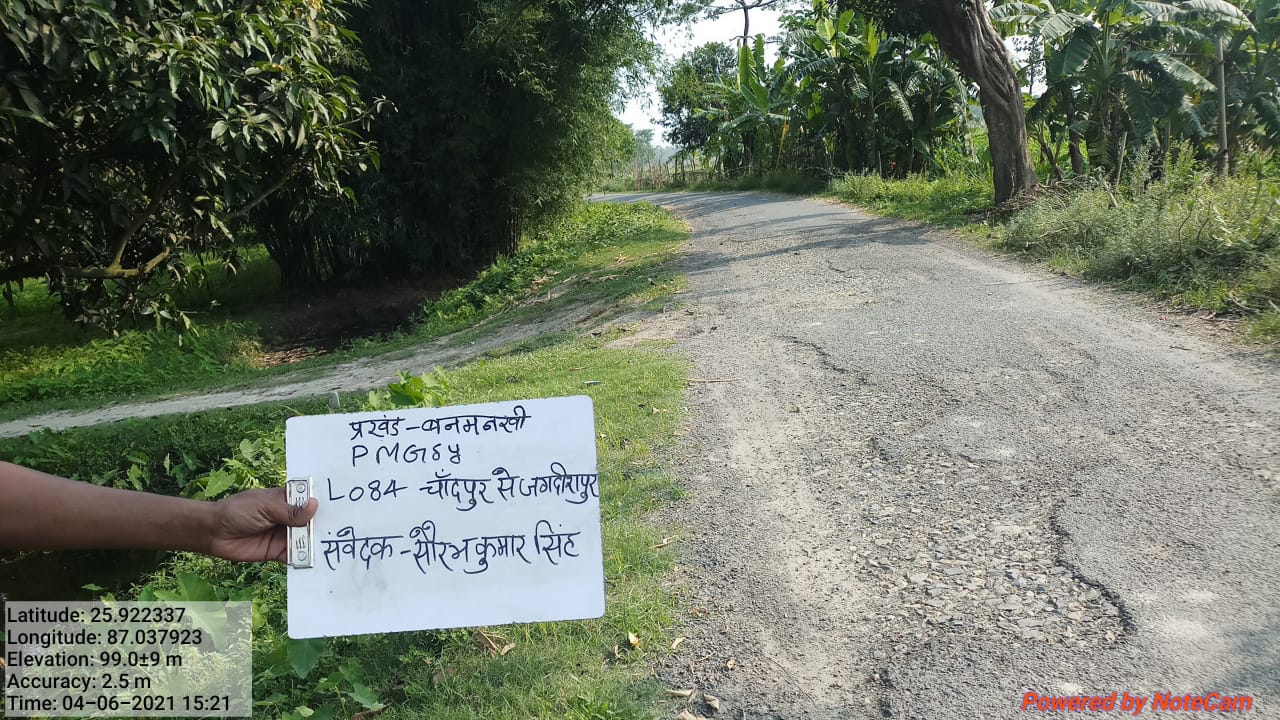 प्रखंड-बनमनखी
PMGSY
L084 - चाँदपुर से जगदीशपुर
संवेदक-सौरभ कुमार सिंह
Latitude: 25.922337
Longitude: 87.037923
Elevation: 99.0±9 m
Accuracy: 2.5 m
Time: 04-06-2021 15:21
Powered by NoteCam